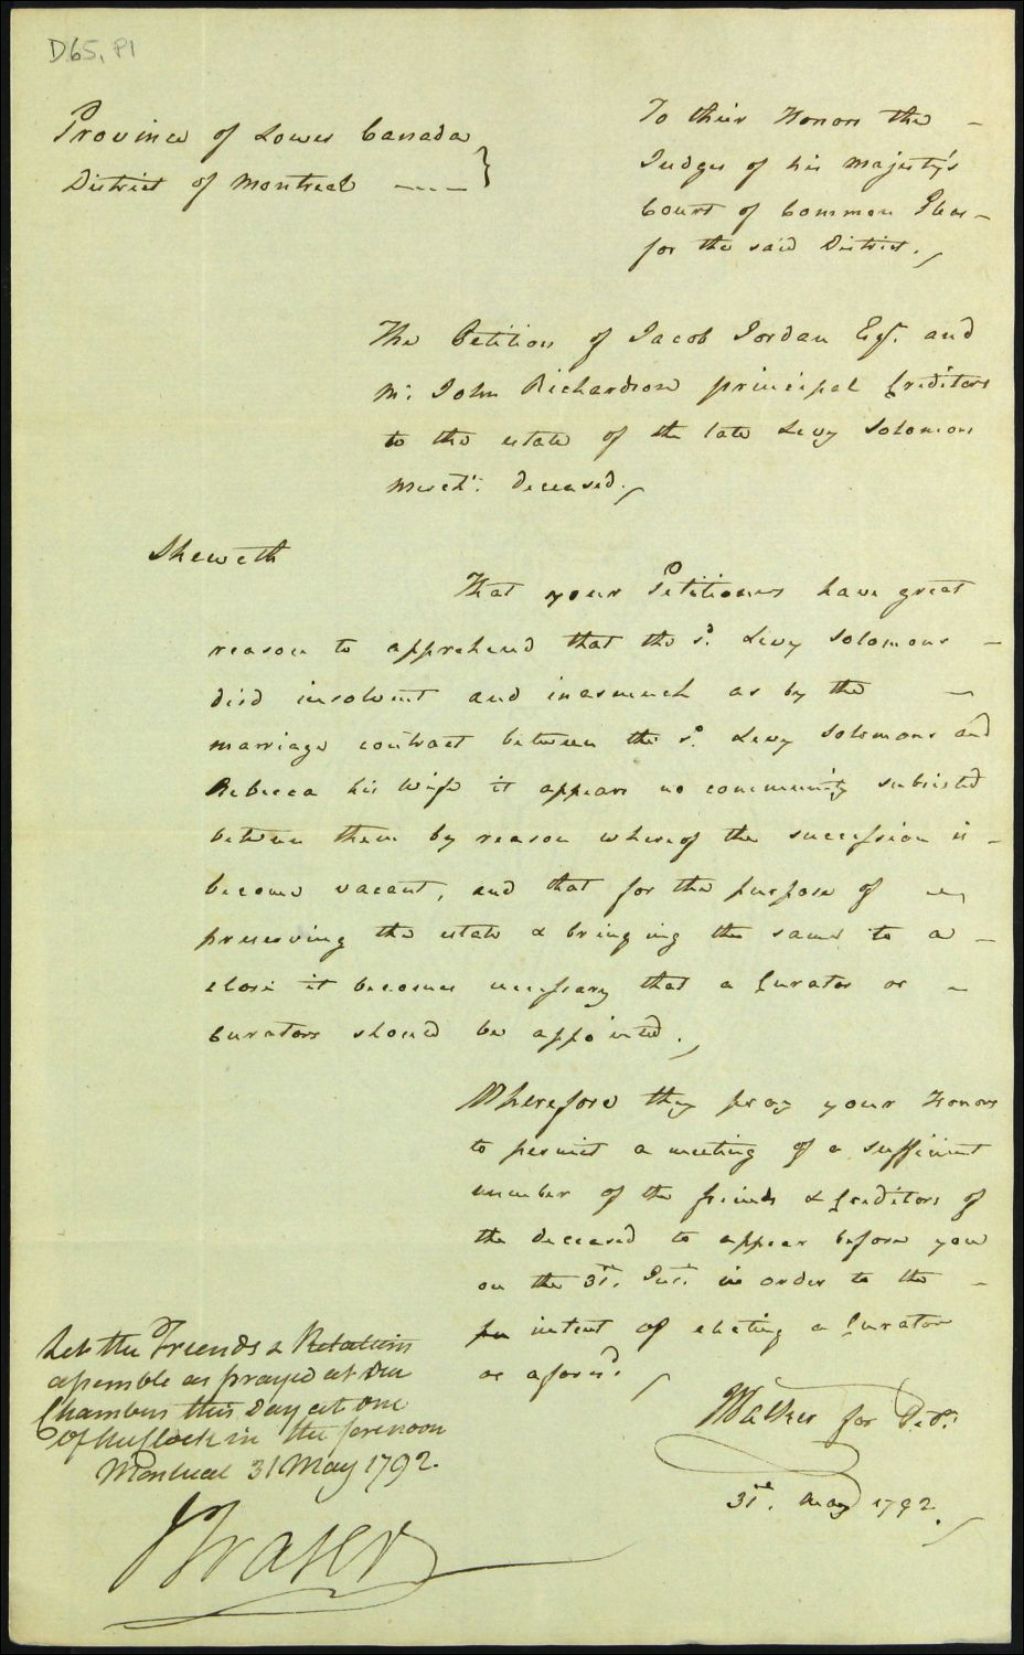 D65, P1
Province of Lower Canada
District of Montreal ---- }
To their Honors the -
Judges of his Majesty's
Court of Common Pleas -
for the said District.
The Petition of Jacob Jordan Esqr. and
Mr. John Richardson principal Creditors
to the estate of the late Levy Solomons
Mercht. deceased.
Sheweth
That your Petitioners have great
reason to apprehend that the sd. Levy Solomons -
died insolvent and inasmuch as by the -
marriage contract between the sd. Levy Solomons and
Rebecca his Wife it appears no community subsisted
between them by reason whereof the succession is -
become vacant, and that for the purpose of
preserving the estate & bringing the same to a -
close it becomes necessary that a Curator or -
Curators should be appointed.
Wherefore they pray your Honors
to permit a meeting of a sufficient
number of the friends & Creditors of
the deceased to appear before you
on the 31st. Inst. in order to the -
intent of electing a Curator
as aforsd.
Walker for Petrs.
31st. May 1792.
Let the Friends & Relations
assemble as prayed at Our
Chambers this Day at One
Of the Clock in the forenoon
Montreal 31 May 1792.
JFraser